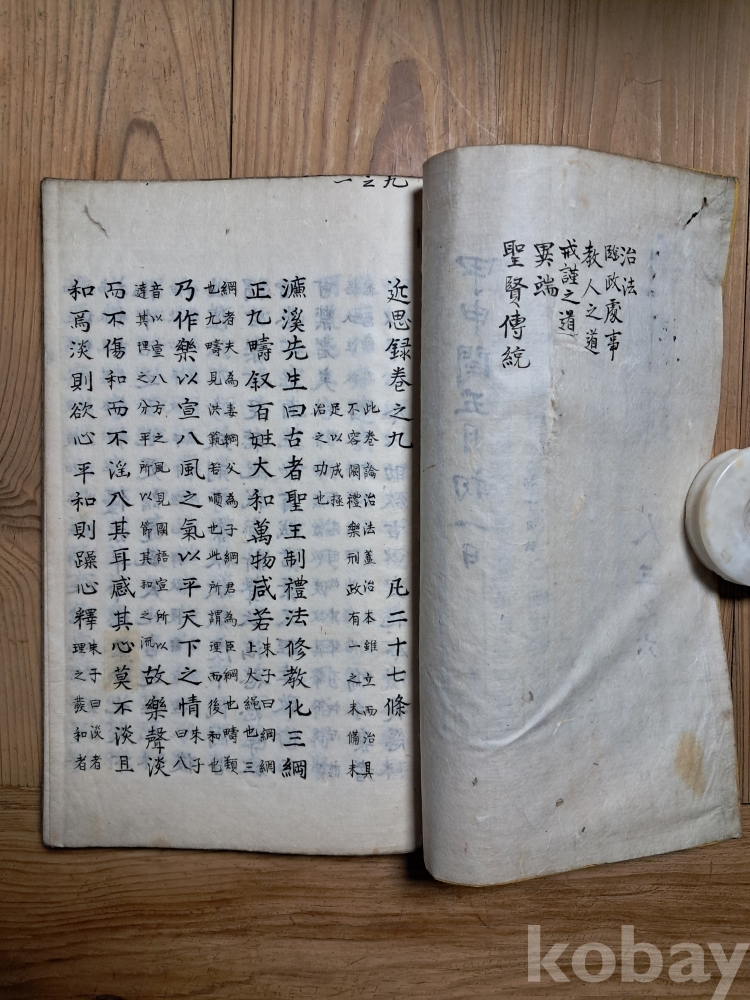 治法
臨政處事
教人之道
戒謹之道
異端
聖賢傳統
九之一
近思録卷之九 凡二十七條
此卷論治法蓋治本雖立而治具
不容闕禮樂刑政有一之未備未
足以成極
治之功也
濂溪先生曰古者聖王制禮法修教化三綱
正九疇叙百姓大和萬物咸若朱子曰綱綱
上大繩也三
綱者夫為妻綱父為子綱君為臣綱也疇類
也九疇見洪範若順也此所謂理而後和也
乃作樂以宣八風之氣以平天下之情朱子
曰八
音以宣八方之風見國語宣所以
達其理之分平所以節其和之流故樂聲淡
而不傷和而不淫入其耳感其心莫不淡且
和焉淡則欲心平和則躁心釋朱子曰淡者
理之發和者
kobay